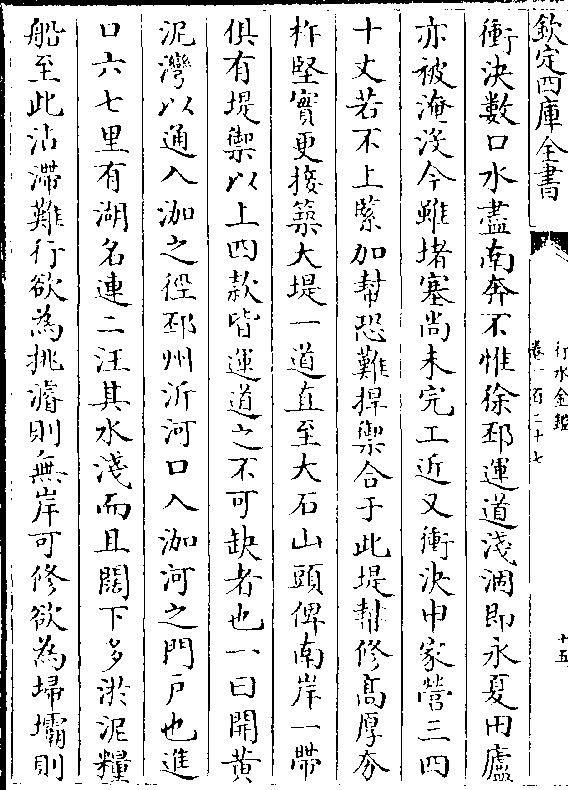 欽定四庫全書
行水金鑑
卷一百二十七
十五
衝決數口水盡南奔不惟徐邳運道淺涸即永夏田廬
亦被淹沒今雖堵塞尚未完工近又衝決申家營三四
十丈若不上緊加幫恐難捍禦合于此堤幫修高厚夯
杵堅實更接築大堤一道直至大石山頭俾南岸一帶
俱有堤禦以上四款皆運道之不可缺者也一曰開黃
泥灣以通入泇之徑邳州沂河口入泇河之門戶也進
口六七里有湖名連二汪其水淺而且闊下多淤泥糧
船至此沾滯難行欲為挑濬則無岸可修欲為埽壩則